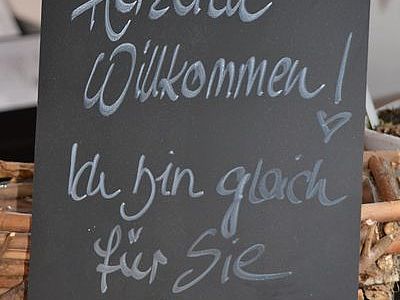 Herzlich
Willkommen!
Ich bin gleich
für Sie